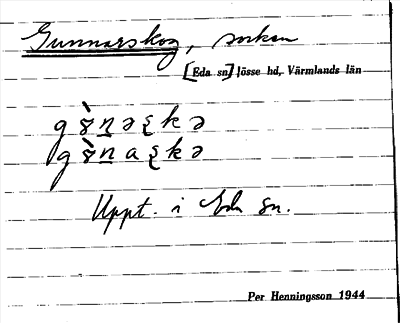 Gunnarskog, socken
[Eda sn] Jösse hd, Värmlands län
Uppt. i Eda sn.
Per Henningsson 1944